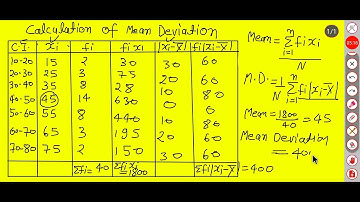 Calculation of Mean Deviation
C.I. xi fi fixi |xi-x̄| fi|xi-x̄|
10-20 15 2 30 30 60
20-30 25 3 75 20 60
30-40 35 8 28 10 80
40-50 45 14 630 0 0
50-60 55 8 440 10 80
60-70 65 3 195 20 60
70-80 75 2 150 30 60
Σfi= 40 Σfixi =1800 Σfi|xi-x̄| =400
1/1
Mean= Σ fixi / N
n
i=1
M.D.= 1/N Σ fi|xi-x̄|
n
i=1
Mean= 1800/40 = 45
Mean Deviation
= 40